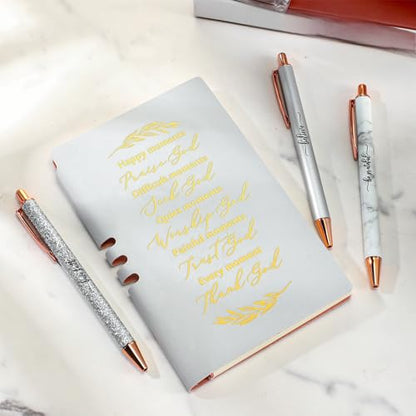 Happy moments
Praise God
Difficult moments
Seek God
Quiet moments
Worship God
Painful moments
Trust God
Every moment
Thank God
believe
be grateful